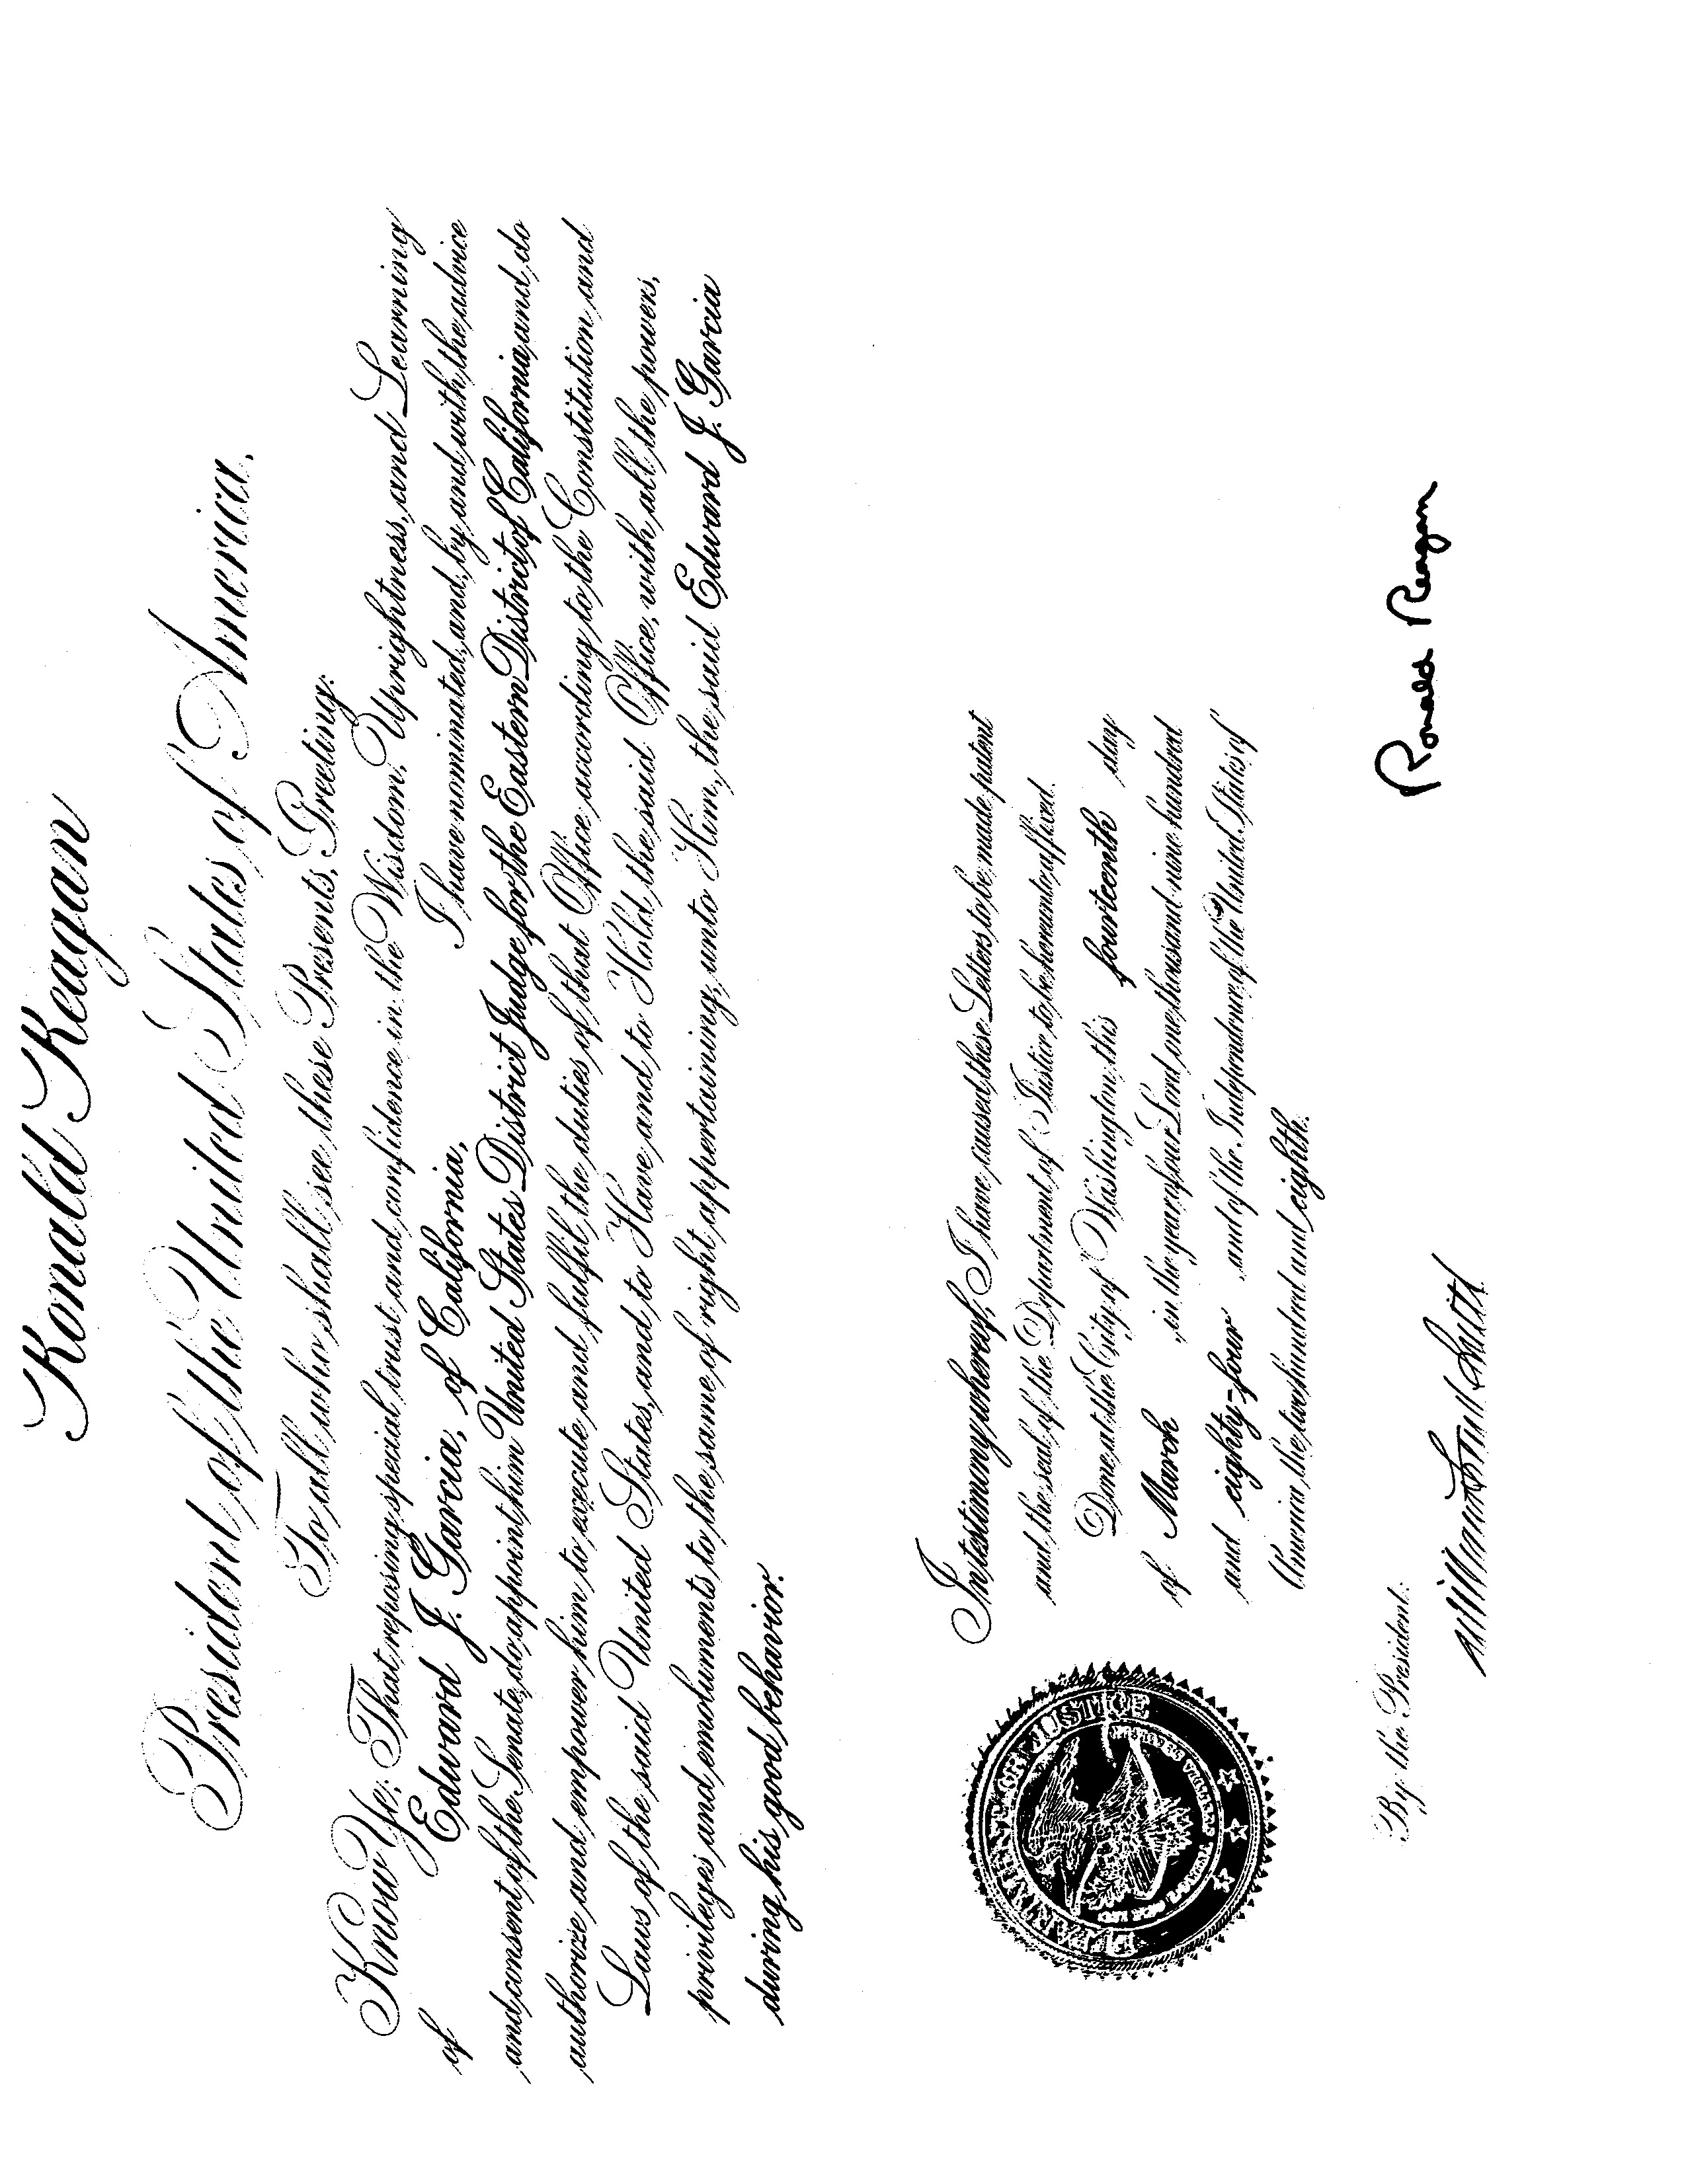 Ronald Reagan
President of the United States of America,
To all who shall see these Presents, Greeting:
Know Ye; That reposing special trust and confidence in the Wisdom, Uprightness, and Learning
of Edward J. Garcia, of California, I have nominated, and, by and with the advice
and consent of the Senate, do appoint him United States District Judge for the Eastern District of California, and do
authorize and empower him to execute and fulfil the duties of that Office according to the Constitution and
Laws of the said United States, and to Have and to Hold the said Office, with all the powers,
privileges and emoluments to the same of right appertaining, unto Him, the said Edward J. Garcia
during his good behavior.
In testimony whereof, I have caused these Letters to be made patent
and the seal of the Department of Justice to be hereunto affixed.
Done at the City of Washington this fourteenth day
of March , in the year of our Lord one thousand nine hundred
and eighty-four , and of the Independence of the United States of
America the two hundred and eighth.
DEPARTMENT OF JUSTICE
By the President:
Ronald Reagan
William French Smith